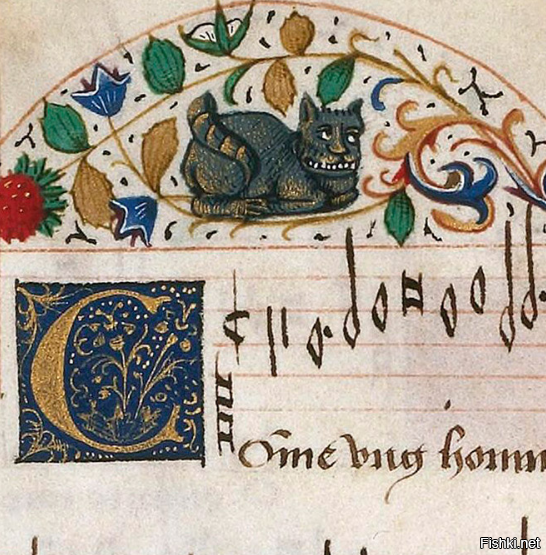 COm̃e vng homm
Fishki.net